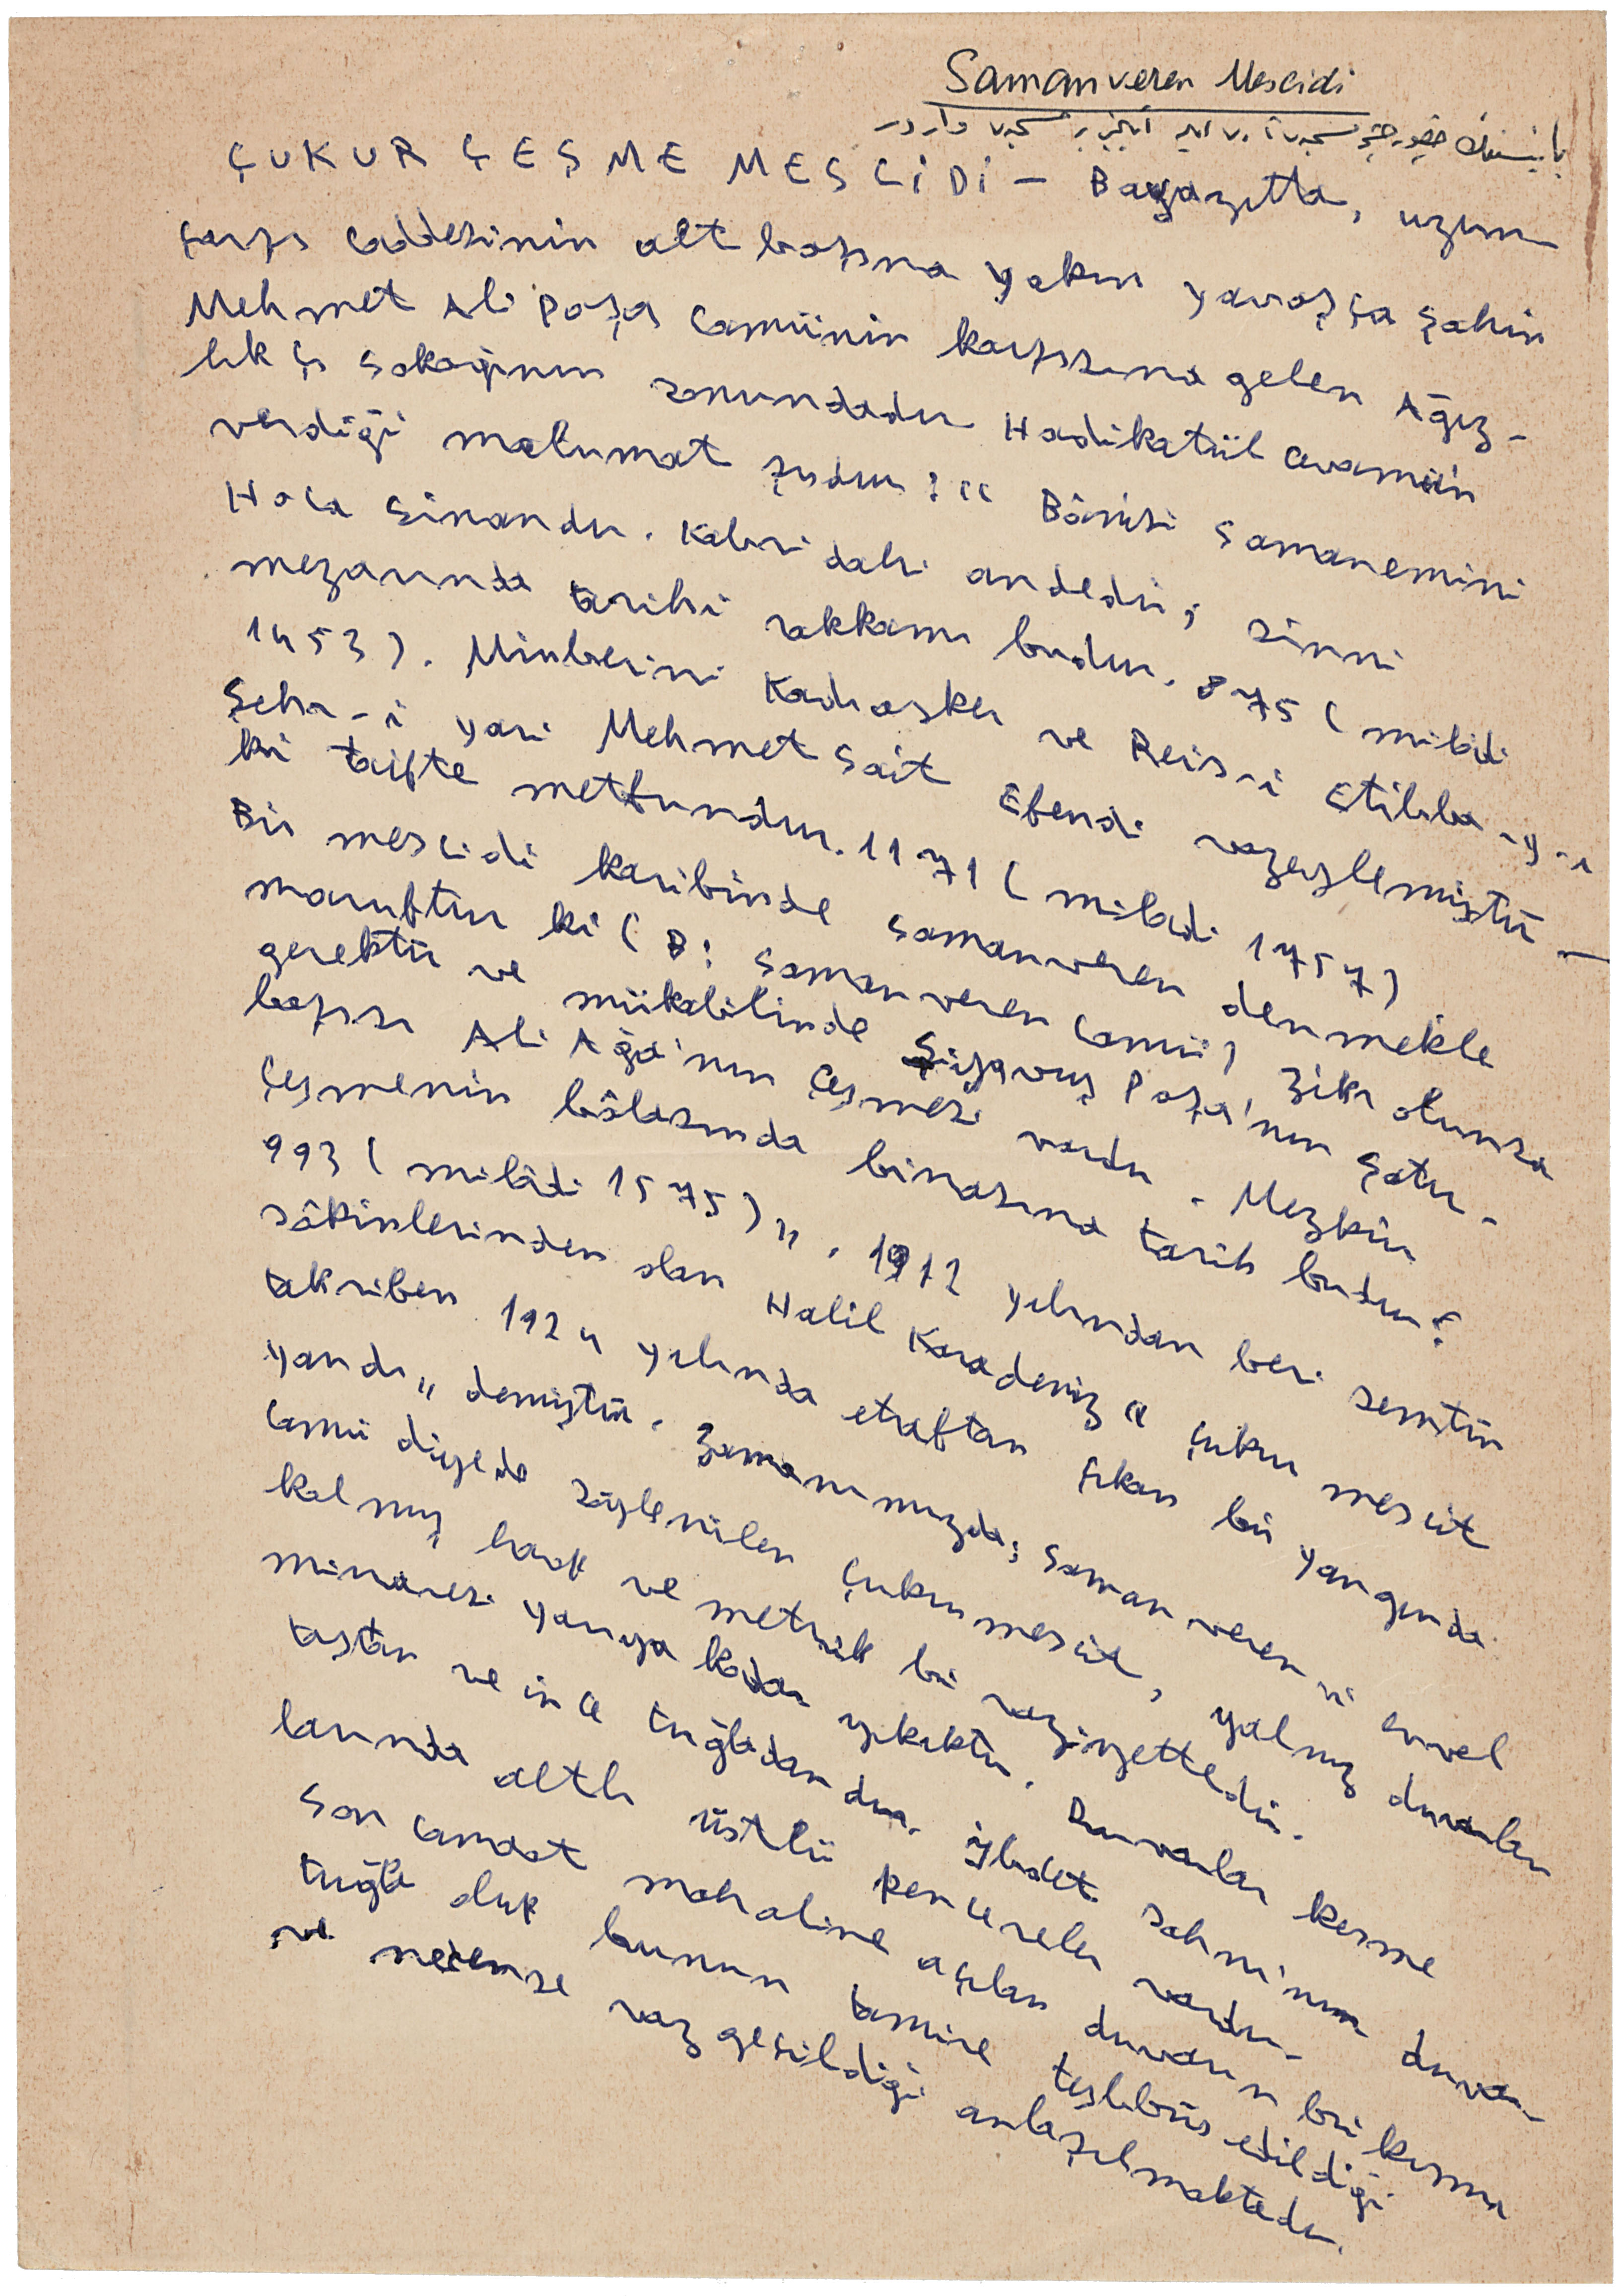 Samanveren Mescidi
ÇUKUR ÇEŞME MESCİDİ — Bayazıtta, uzun
çarşı caddesinin alt başına yakın yavaşça Şahin
Mehmet Ali Paşa Camiinin karşısına gelen Ağız-
lık çı Sokağının sonundadır Hadikatül Cevamiin
verdiği malumat şudur: " Bânisi Samanemini
Hoca Sinandır. Kabri dahi andedir; sinni
mezarında tarihi rakkamı budur. 875 (milâdi
1453). Minberini Kadıasker ve Reis-i Etibba-y-ı
Şehr-i yari Mehmet Sait Efendi vazeylemiştir
ki taifte metfundur. 1171 (miladi 1757)
Bir mescidi karibinde Samanveren denmekle
maruftur ki (B: Saman veren Camii) Zikr olunsa
gerektir ve mükabilinde Siyavuş Paşa'nın Şatır-
başısı Ali Ağa'nın Çeşmesi vardır. Mezkûr
Çeşmenin bâlasında binasına tarih budur:
993 (milâdi 1575)„. 1912 yılından beri semtin
sâkinlerinden olan Halil Karadeniz " Çukur mescit
takriben 1924 yılında etraftan çıkan bir yangında
yandı„ demiştir. Zamanımızda; Saman veren ii evvel
Camii diyede söylenilen Çukur mescit, yalnız duvarları
kalmış harap ve metruk bir vaziyettedir.
minaresi yarıya kadar yıkıktır. Duvarlar kesme
taştan ve ince tuğladandır. İbadet sahnı'nın duvar-
larında altlı üstlü pencereler vardır.
Son camaat mahaline açılan duvarın bir kısmı
tuğla olup bunun tamire teşebbüs edildiği
ve nedense vaz geçildiği anlaşılmaktadır.